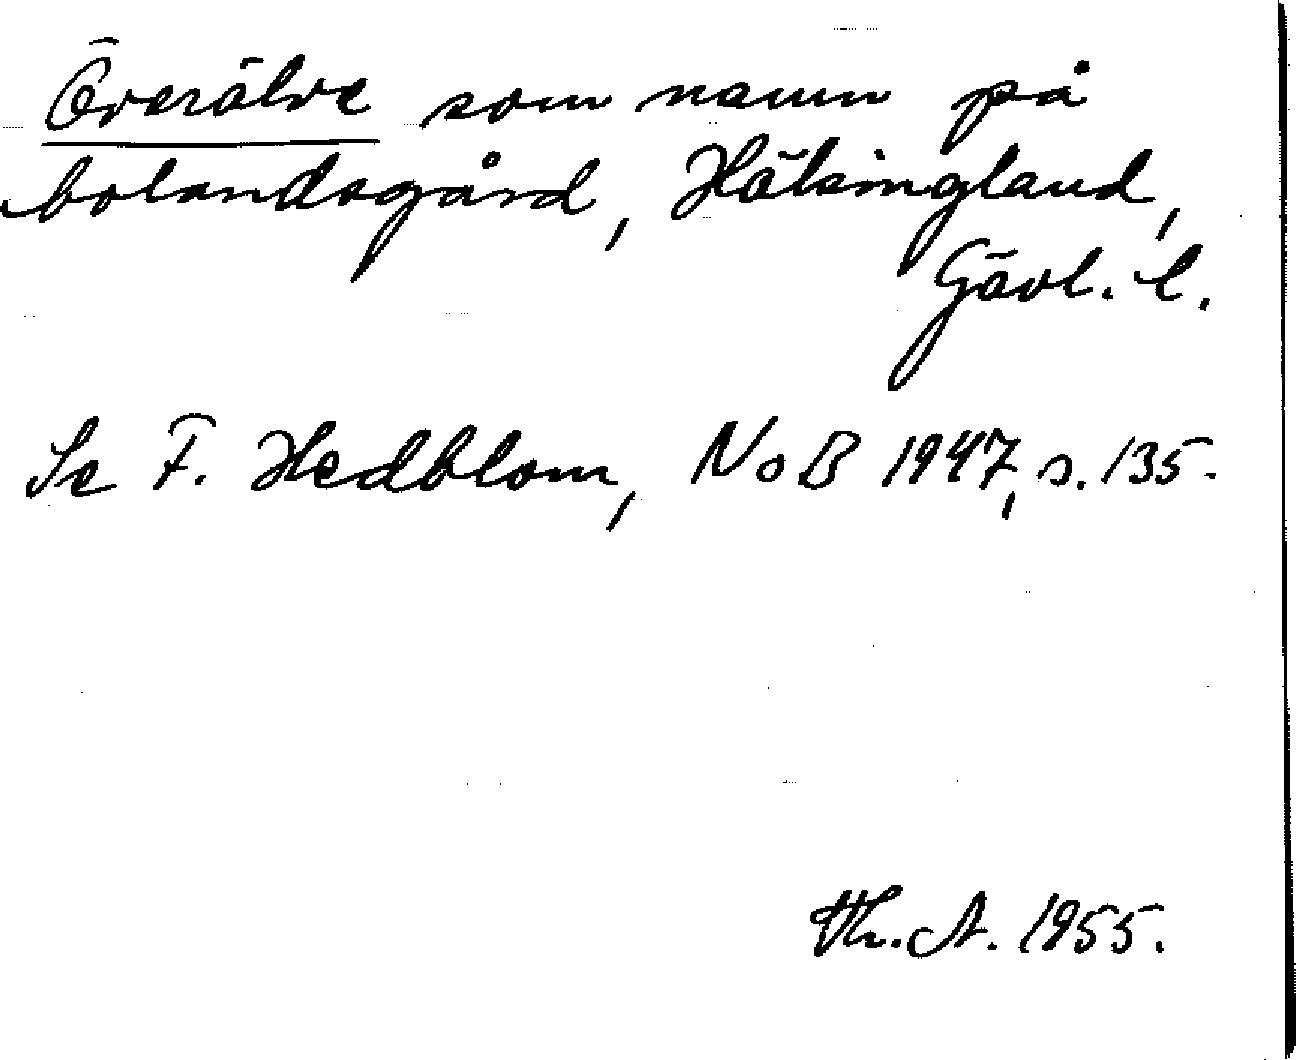 Överälve som namn på
bolandsgård, Hälsingland,
Gävl. l.
Se F. Hedblom, NoB 1947, s. 135.
Th. A. 1955.